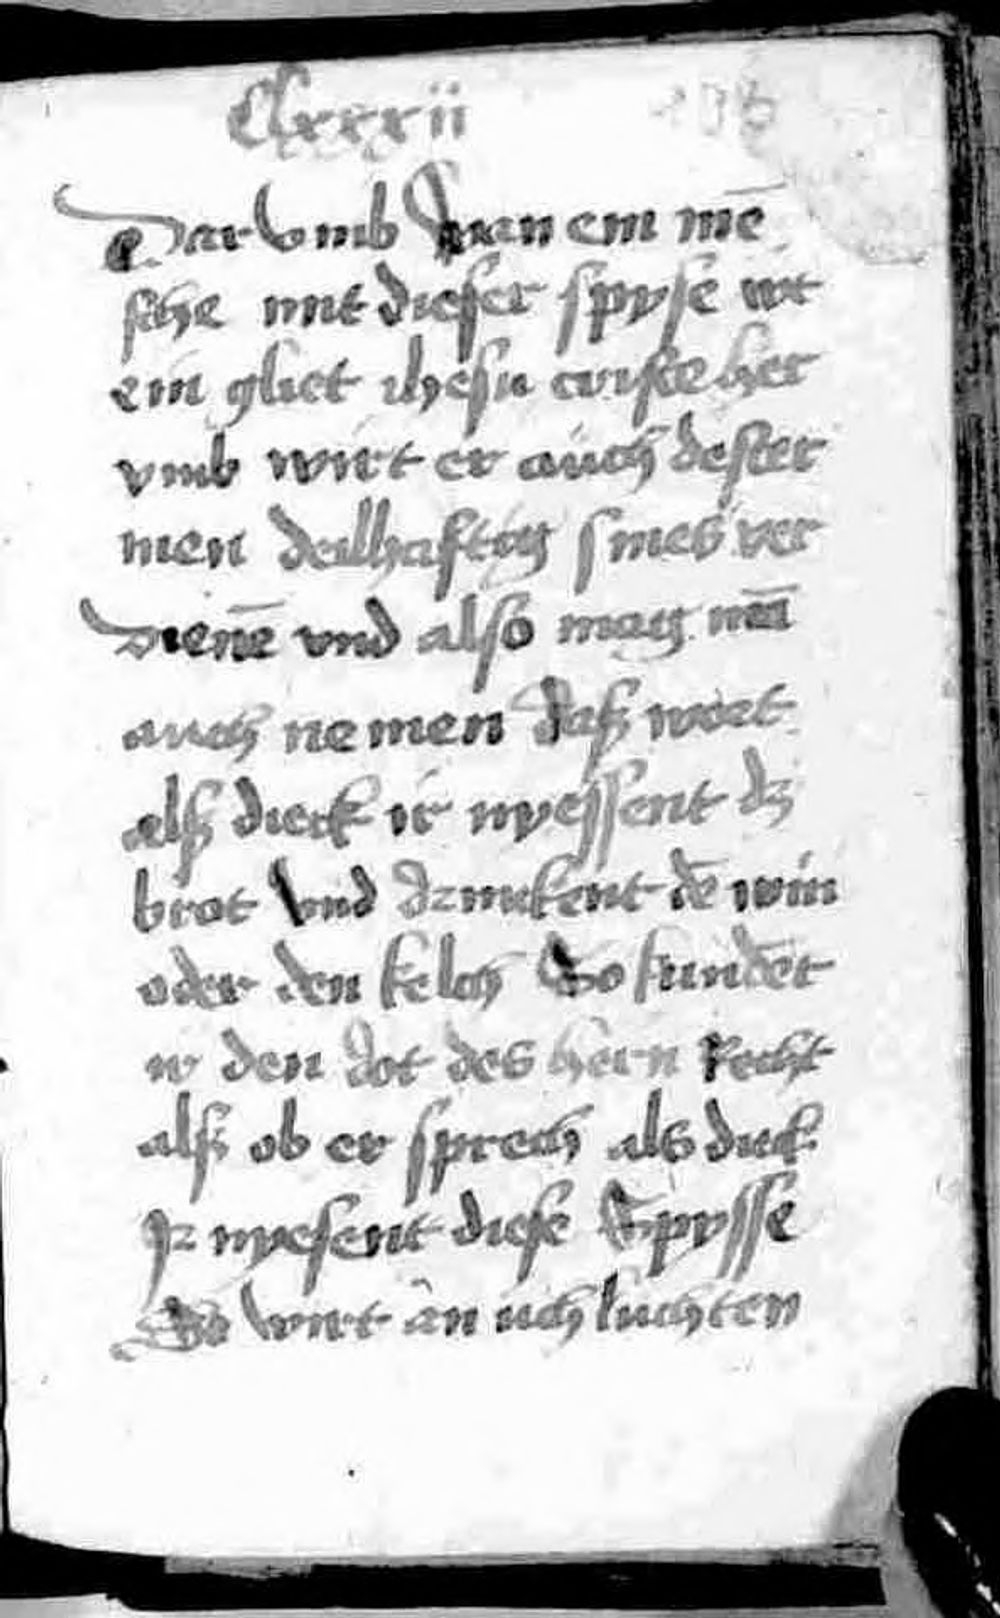 Clxxxii
Dar vmb wan ein mē
sche mit dieser spyse wt
ein gliet ihesu criste her
vmb wirt er auch dester
men deilhaftig sines ver
dienē vnd also mag mā
auch nemen daß wort
alß dick ir nyessent dz
brot vnd drinckent dē win
oder den kelch So kundēt
ir den dot des hern Recht
alß ob er sprech als dick
Ir nyesent diese Spysse
So wirt an uch luchten